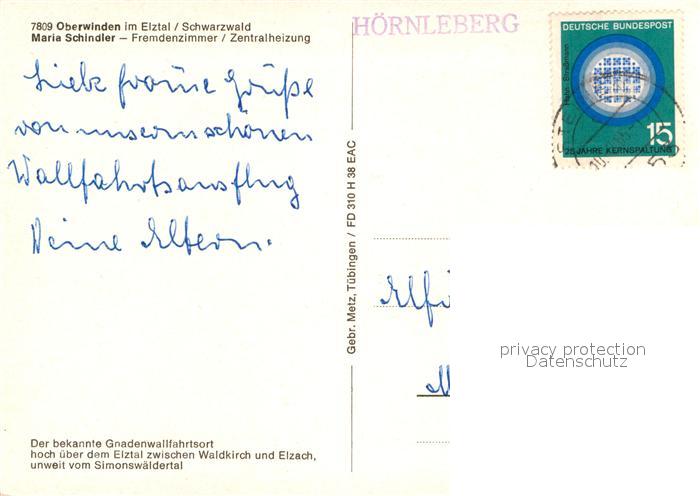 7809 Oberwinden im Elztal / Schwarzwald
Maria Schindler – Fremdenzimmer / Zentralheizung
HÖRNLEBERG
DEUTSCHE BUNDESPOST
Hahn · Straßmann
15
25 JAHRE KERNSPALTUNG
Liebe Grüße
von unserm schönen
Wallfahrtsausflug
Deine Eltern.
Gebr. Metz, Tübingen / FD 310 H 38 EAC
privacy protection
Datenschutz
Der bekannte Gnadenwallfahrtsort
hoch über dem Elztal zwischen Waldkirch und Elzach,
unweit vom Simonswäldertal